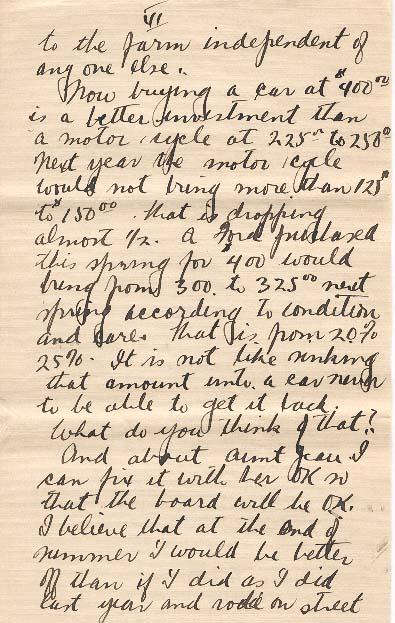 VI
to the farm independent of
any one else.
Now buying a car at $400.00
is a better investment than
a motor cycle at 225.00 to 250.00
Next year the motor cycle
would not bring more than 125$
to $150.00. that is dropping
almost 1/2. A Ford purchased
this spring for $400 would
bring from 300. to 325.00 next
spring according to condition
and care. that is from 20%
25%. It is not like sinking
that amount into a car never
to be able to get it back.
What do you think of that?
And about aunt Jean I
can fix it with her OK so
that the board will be OK.
I believe that at the end of
summer I would be better
off than if I did as I did
last year and rode on street